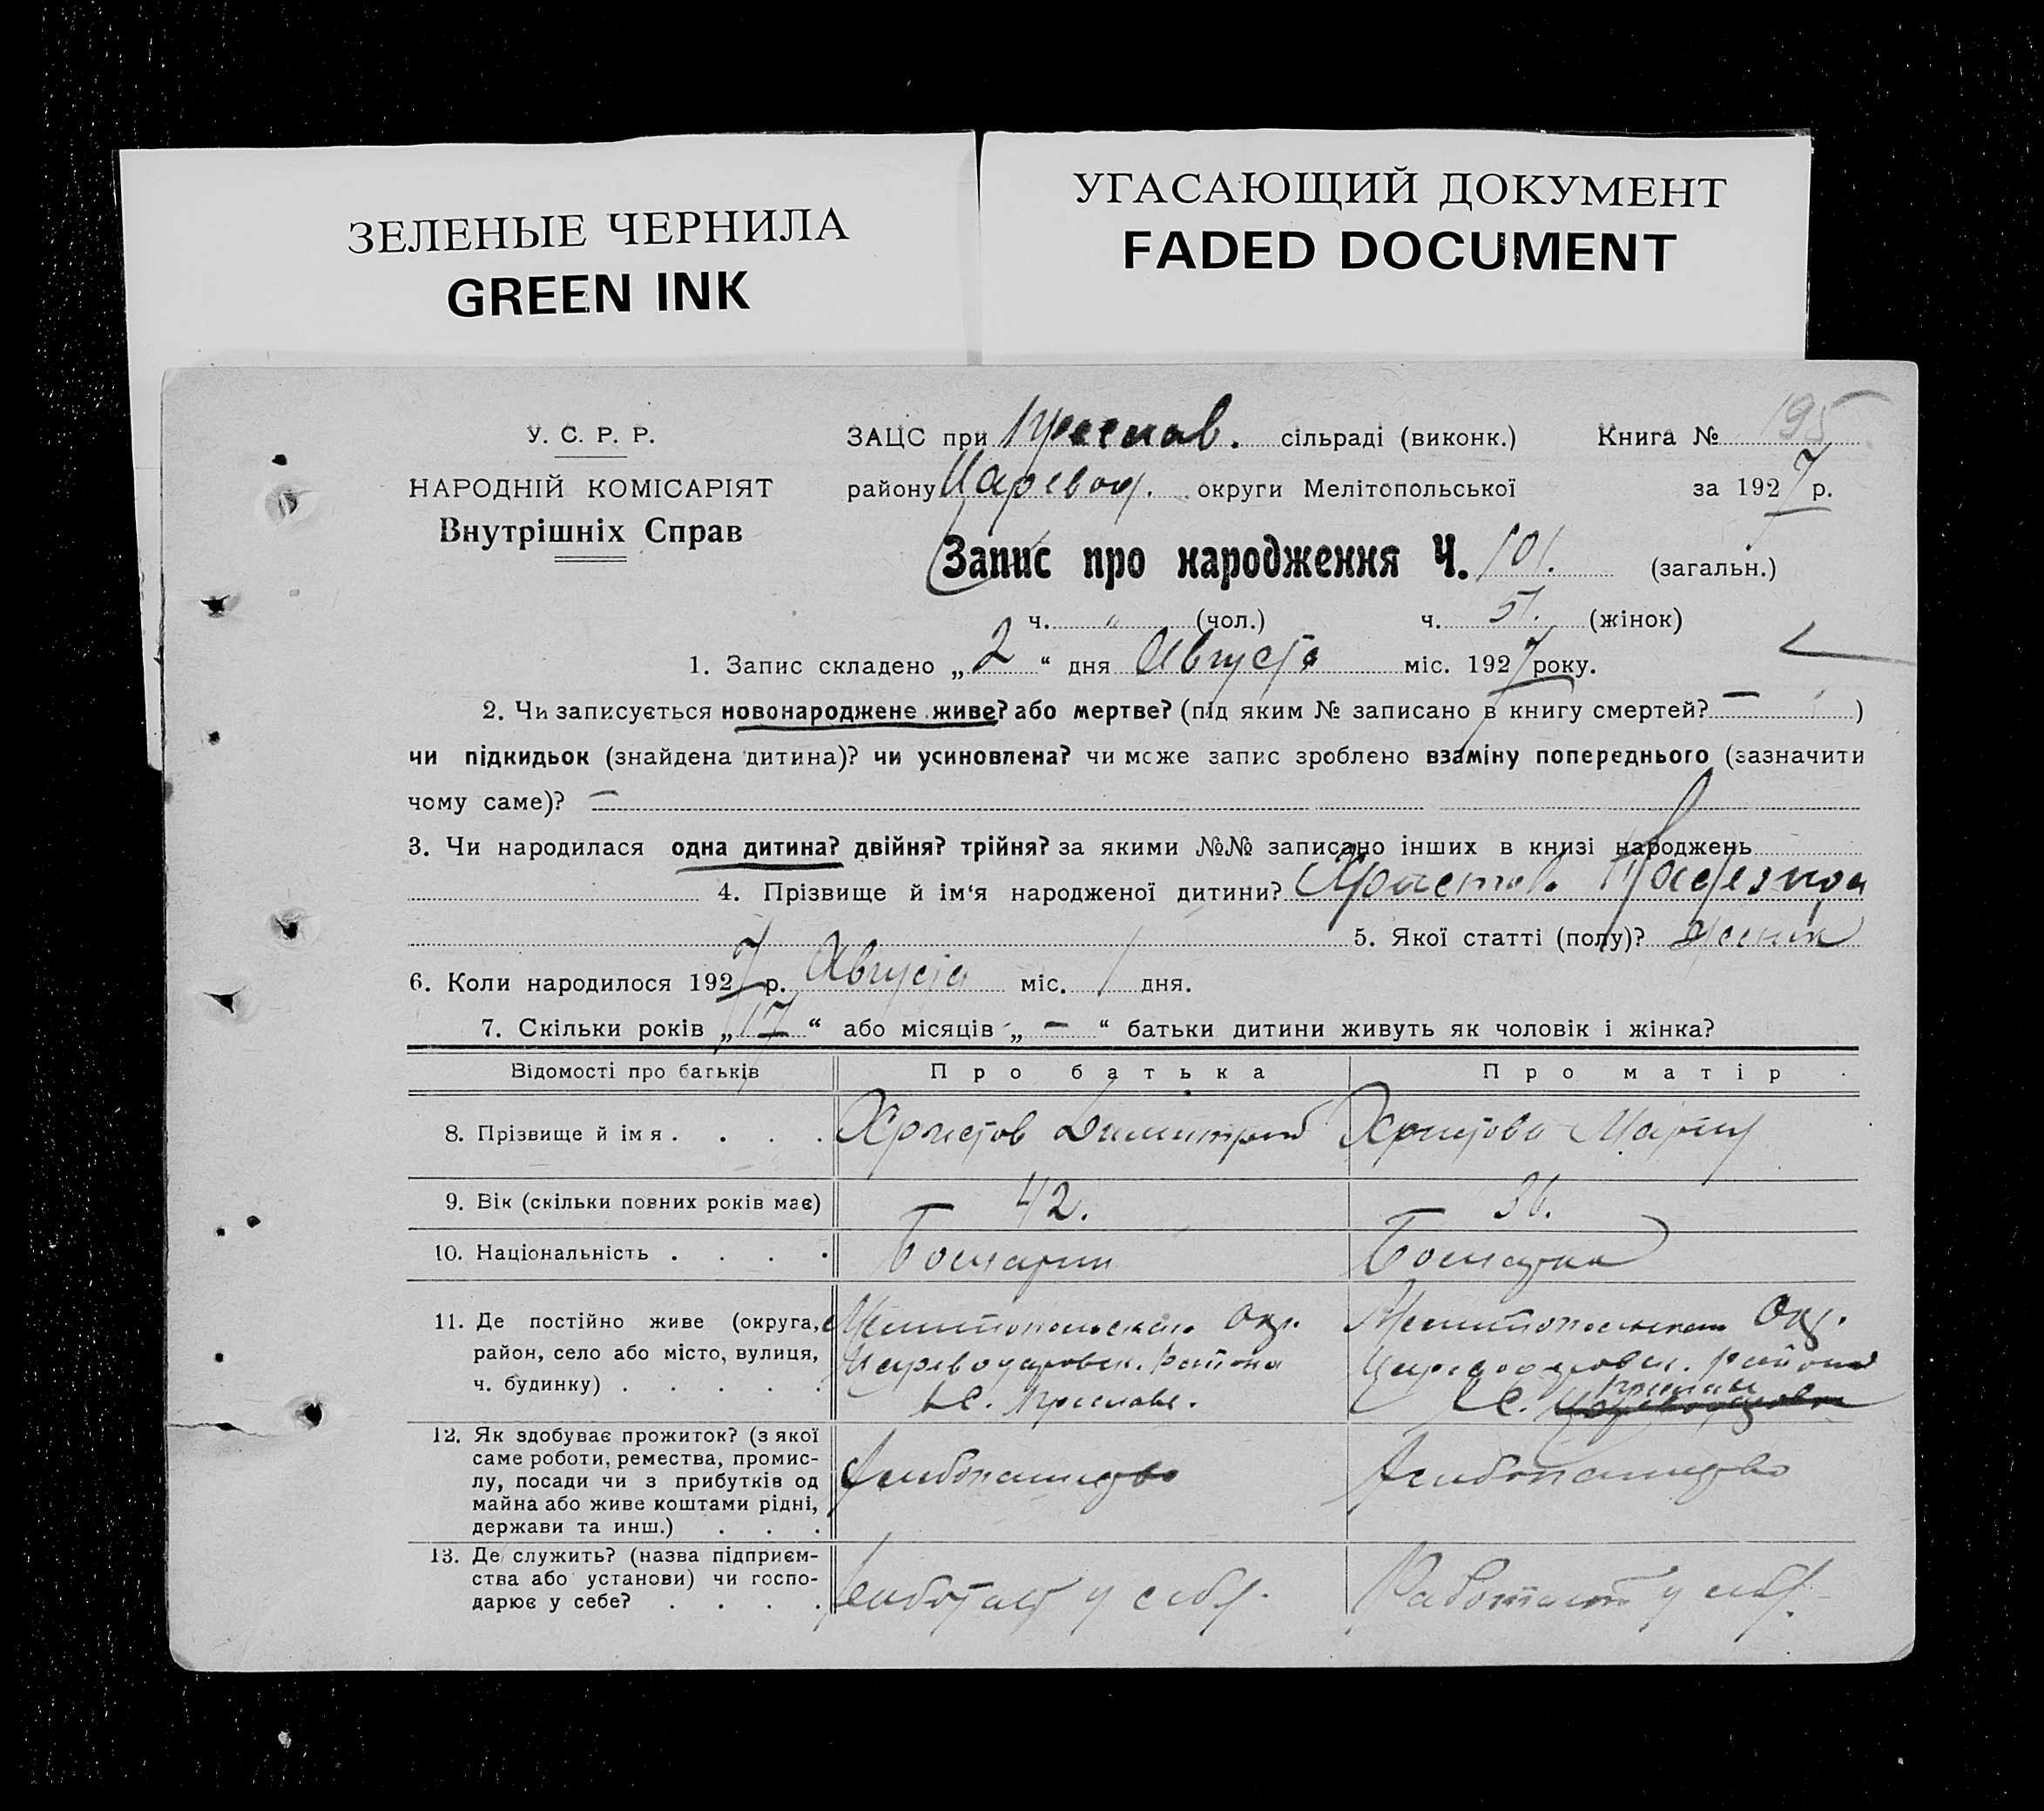 ЗЕЛЕНЫЕ ЧЕРНИЛА
GREEN INK
УГАСАЮЩИЙ ДОКУМЕНТ
FADED DOCUMENT
У. С. Р. Р.
НАРОДНІЙ КОМІСАРІЯТ
Внутрішніх Справ
ЗАЦС при Преслав. сільраді (виконк.) Книга № 195
району Царевод. округи Мелітопольської за 1927 р.
Запис про народження Ч. 101. (загальн.)
ч. " (чол.) ч. 51. (жінок)
1. Запис складено „2“ дня Августа міс. 1927 року.
2. Чи записується новонароджене живе? або мертве? (під яким № записано в книгу смертей? — )
чи підкидьок (знайдена дитина)? чи усиновлена? чи може запис зроблено взаміну попереднього (зазначити
чому саме)? —
3. Чи народилася одна дитина? двійня? трійня? за якими №№ записано інших в книзі народжень
4. Прізвище й ім‘я народженої дитини? Христов.
5. Якої статті (полу)? женск
6. Коли народилося 1927 р. Августа міс. 1 дня.
7. Скільки років „17“ або місяців „—“ батьки дитини живуть як чоловік і жінка?
Відомості про батьків Про батька Про матір
8. Прізвище й ім я . . . . Христов Димитрий Христова Мария
9. Вік (скільки повних років має) 42. 36.
10. Національність . . . . Болгарин Болгарка
11. Де постійно живе (округа, Мелитопольская Окр. Мелитопольская Окр.
район, село або місто, вулиця, Цареводаровск. района Цареводаровск. района
ч. будинку) . . . . . с. Преслав. с. Преслав
12. Як здобуває прожиток? (з якої
саме роботи, ремества, промис-
лу, посади чи з прибутків од Хлебопашество Хлебопашество
майна або живе коштами рідні,
держави та инш.) . . .
13. Де служить? (назва підприєм-
ства або установи) чи госпо- Работает у себя. Работает у себя.
дарює у себе? . . . .